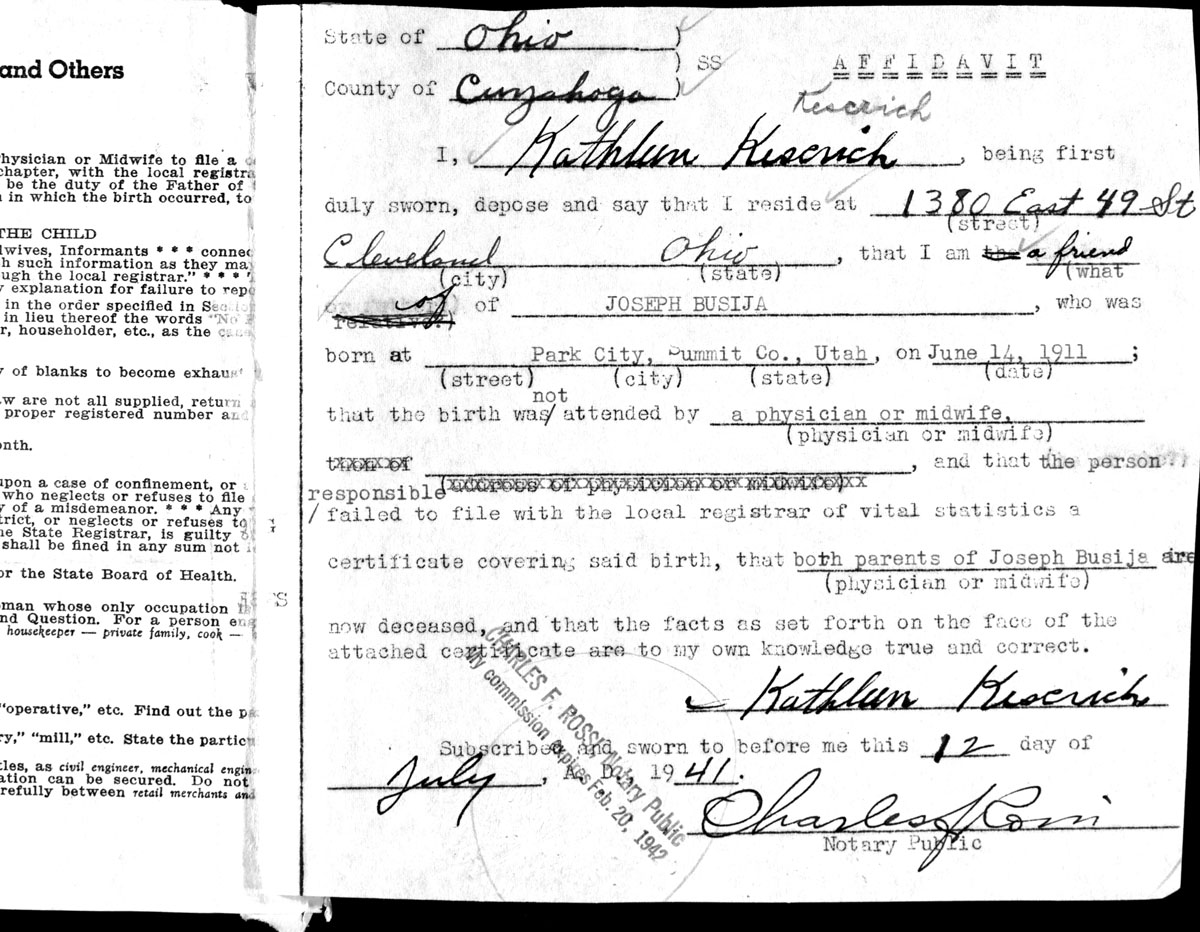 and Others
Physician or Midwife to file a
chapter, with the local registra
be the duty of the Father of
in which the birth occurred, to
THE CHILD
dwives, Informants * * * connec
h such information as they ma
ugh the local registrar." * * *
explanation for failure to repo
in the order specified in
in lieu thereof the words "No
r, householder, etc., as the case
y of blanks to become exhaust
aw are not all supplied, return
proper registered number and
onth.
upon a case of confinement, or
who neglects or refuses to file
y of a misdemeanor. * * * Any
trict, or neglects or refuses to
he State Registrar, is guilty
shall be fined in any sum not
or the State Board of Health.
oman whose only occupation
nd Question. For a person eng
housekeeper — private family, cook —
"operative," etc. Find out the
ry," "mill," etc. State the particu
cles, as civil engineer, mechanical engin
ation can be secured. Do not
refully between retail merchants and
State of Ohio )
) SS
AFFIDAVIT
County of Cuyahoga )
Kescrich
I, Kathleen Kescrich, being first
duly sworn, depose and say that I reside at 1380 East 49 St
(street)
Cleveland Ohio, that I am the a friend
(city) (state) (what
of of JOSEPH BUSIJA, who was
relative.)
born at Park City, Summit Co., Utah, on June 14, 1911;
(street) (city) (state) (date)
not
that the birth was/ attended by a physician or midwife,
(physician or midwife)
, and that the person
responsible (address of physician or midwife)
/failed to file with the local registrar of vital statistics a
certificate covering said birth, that both parents of Joseph Busija are
(physician or midwife)
now deceased, and that the facts as set forth on the face of the
attached certificate are to my own knowledge true and correct.
Kathleen Kescrich
Subscribed and sworn to before me this 12 day of
July, A. D. 1941.
CHARLES F. ROSSI, Notary Public
My commission expires Feb. 20, 1942
Charles F. Rossi
Notary Public